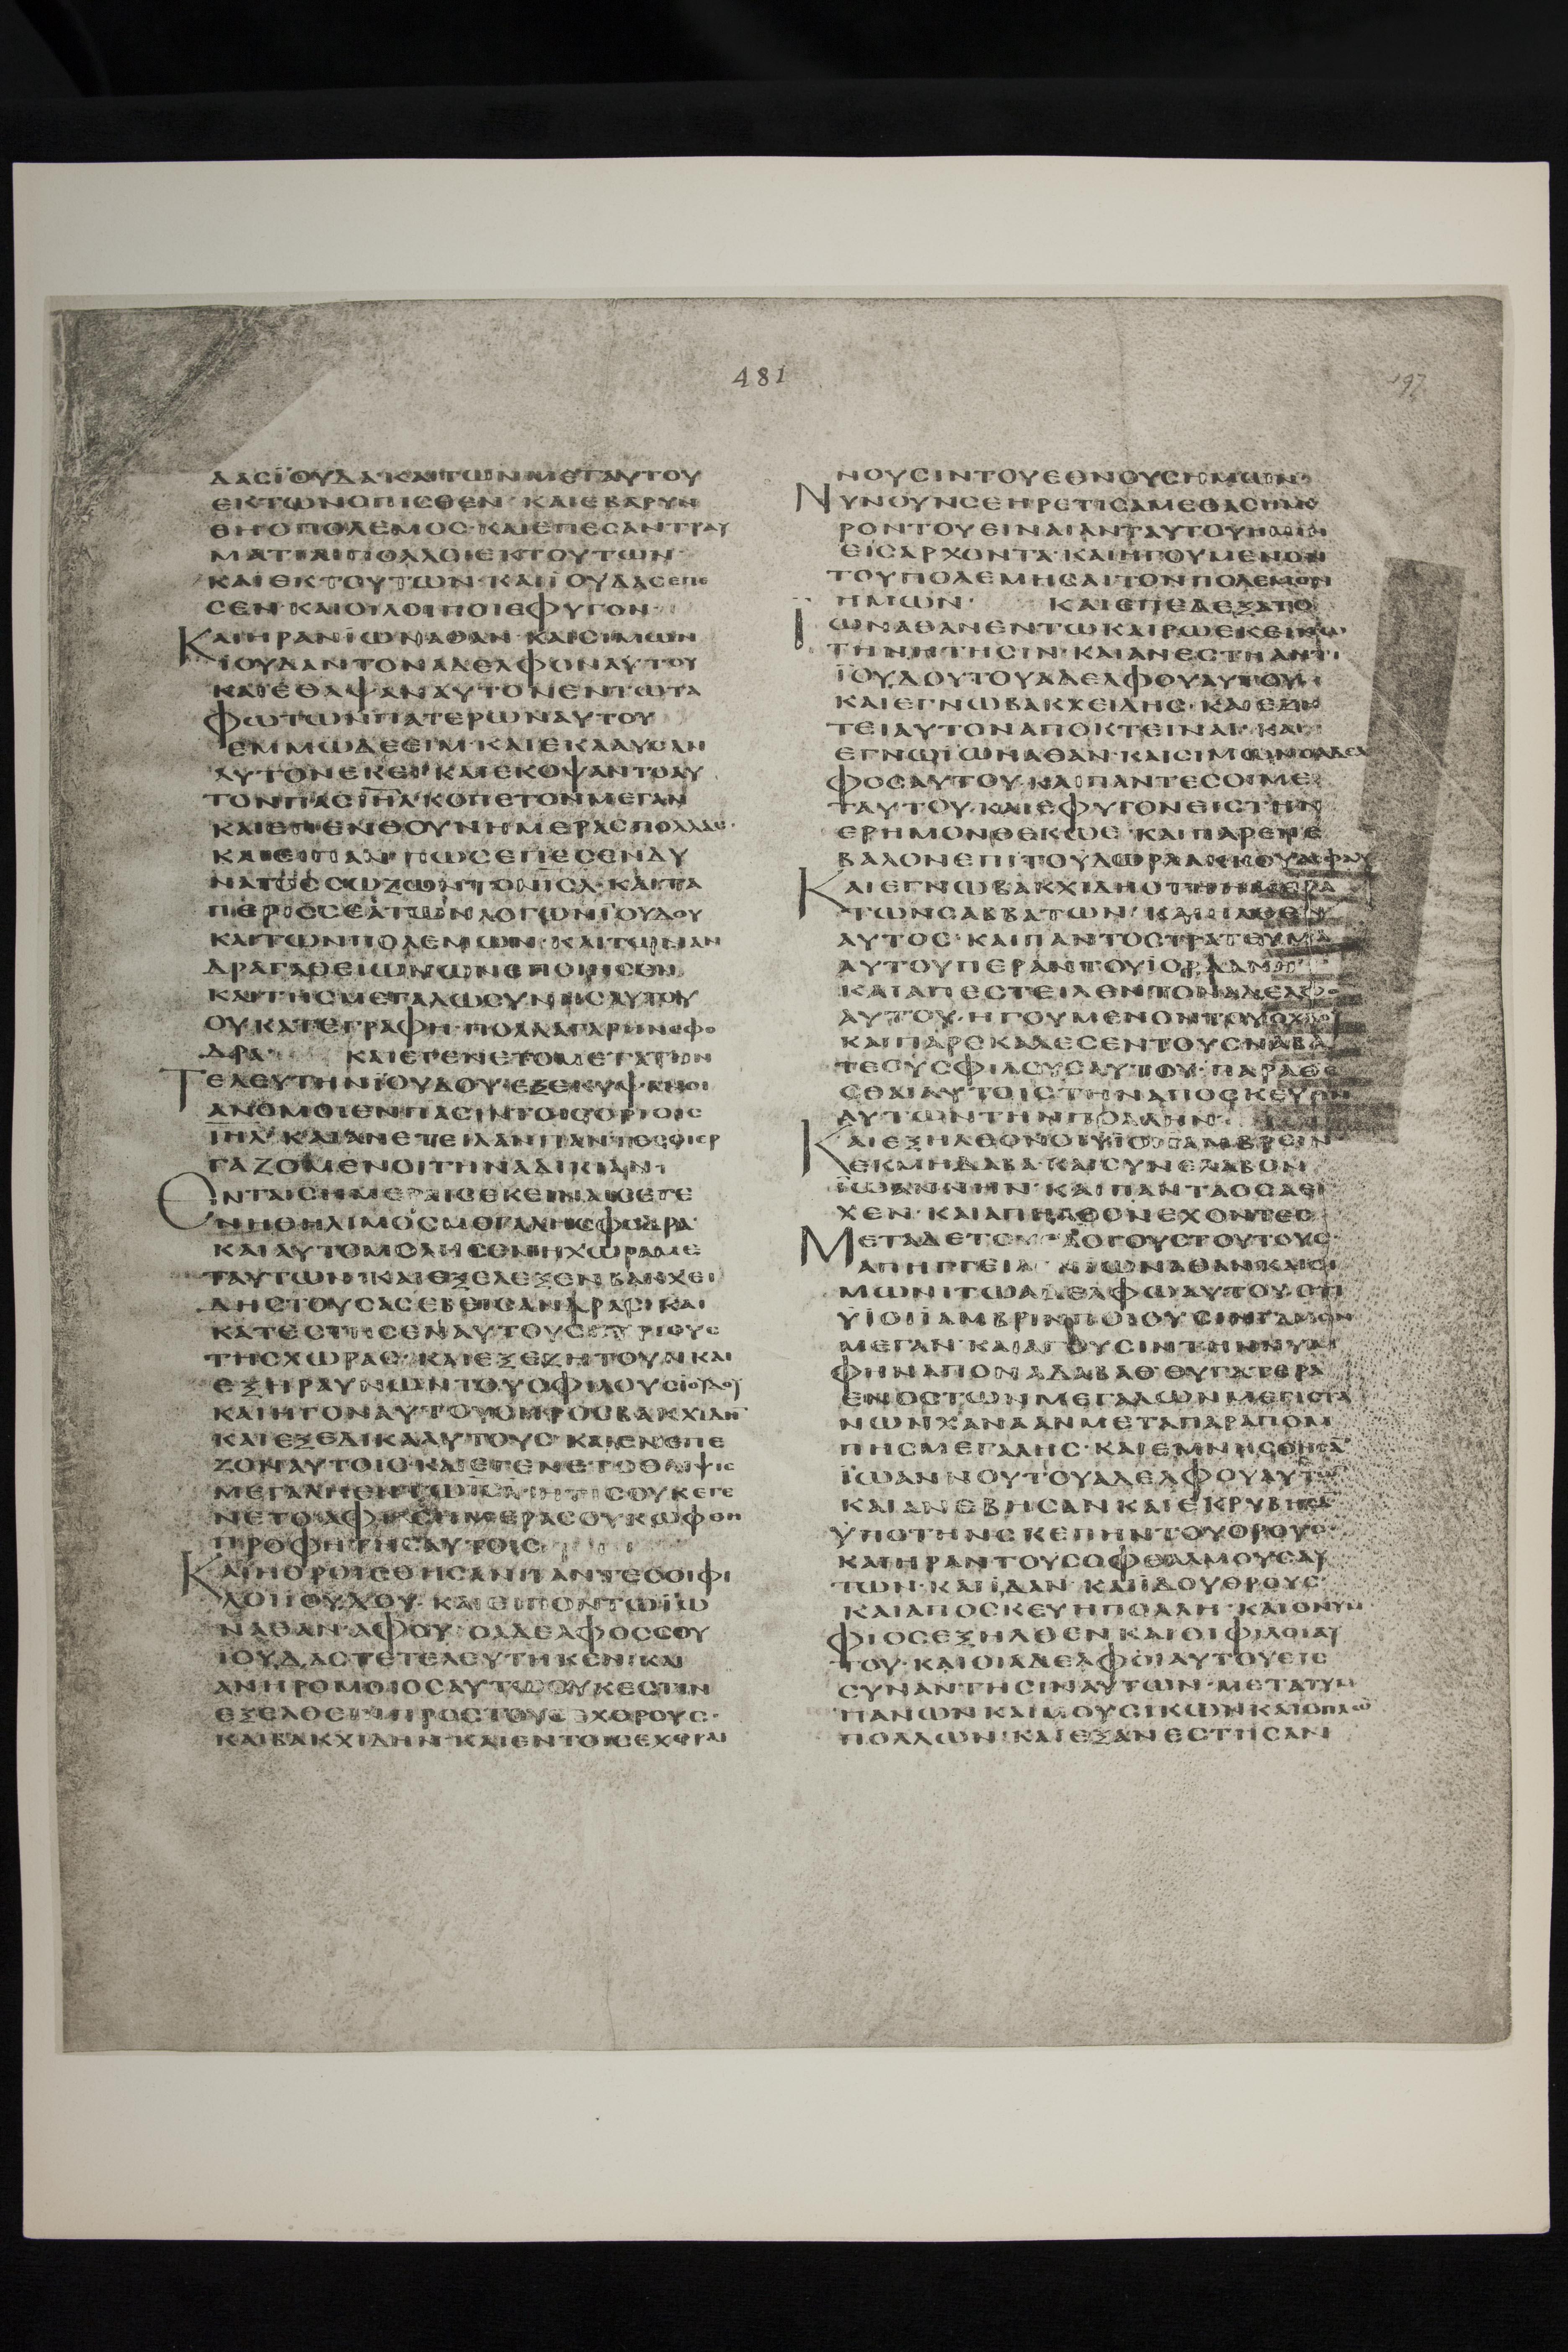 481
197
ΔΑΣΪΟΥΔΑ·ΚΑΙΤΩΝΜΕΤΑΥΤΟΥ
ΕΚΤΩΝΟΠΙΣΘΕΝ·ΚΑΙΕΒΑΡΥΝ
ΘΗΟΠΟΛΕΜΟΣ·ΚΑΙΕΠΕΣΑΝΤΡΑΥ
ΜΑΤΙΑΙΠΟΛΛΟΙΕΚΤΟΥΤΩΝ·
ΚΑΙΕΚΤΟΥΤΩΝ·ΚΑΙΪΟΥΔΑΣΕΠΕ
ΣΕΝ·ΚΑΙΟΙΛΟΙΠΟΙΕΦΥΓΟΝ·
ΚΑΙΗΡΑΝΪΩΝΑΘΑΝ·ΚΑΙΣΙΜΩΝ
ΪΟΥΔΑΝΤΟΝΑΔΕΛΦΟΝΑΥΤΟΥ
ΚΑΙΕΘΑΨΑΝΑΥΤΟΝΕΝΤΩΤΑ
ΦΩΤΩΝΠΑΤΕΡΩΝΑΥΤΟΥ
ΕΜΜΩΔΕΕΙΜ·ΚΑΙΕΚΛΑΥΣΑΝ
ΑΥΤΟΝΕΚΕΙ·ΚΑΙΕΚΟΨΑΝΤΟΑΥ
ΤΟΝΠΑΣΙΗΛ·ΚΟΠΕΤΟΝΜΕΓΑΝ
ΚΑΙΕΠΕΝΘΟΥΝΗΜΕΡΑΣΠΟΛΛΑΣ·
ΚΑΙΕΙΠΑΝ·ΠΩΣΕΠΕΣΕΝΔΥ
ΝΑΤΟΣΣΩΖΩΝΤΟΝΙΣΛ·ΚΑΙΤΑ
ΠΕΡΙΣΣΕΑΤΩΝΛΟΓΩΝΪΟΥΔΟΥ
ΚΑΙΤΩΝΠΟΛΕΜΩΝ·ΚΑΙΤΩΝΑΝ
ΔΡΑΓΑΘΕΙΩΝΩΝΕΠΟΙΗΣΕΝ
ΚΑΙΤΗΣΜΕΓΑΛΩΣΥΝΗΣΑΥΤΟΥ
ΟΥΚΑΤΕΓΡΑΦΗ·ΠΟΛΛΑΓΑΡΗΝΣΦΟ
ΔΡΑ· ΚΑΙΕΓΕΝΕΤΟΜΕΤΑΤΗΝ
ΤΕΛΕΥΤΗΝΪΟΥΔΟΥ·ΕΞΕΚΥΨΑΝΟΙ
ΑΝΟΜΟΙΕΝΠΑΣΙΝΤΟΙΣΟΡΙΟΙΣ
ΙΗΛ·ΚΑΙΑΝΕΤΕΙΛΑΝΠΑΝΤΕΣΟΙΕΡ
ΓΑΖΟΜΕΝΟΙΤΗΝΑΔΙΚΙΑΝ·
ΕΝΤΑΙΣΗΜΕΡΑΙΣΕΚΕΙΝΑΙΣΕΓΕ
ΝΗΘΗΛΙΜΟΣΜΕΓΑΛΗΣΦΟΔΡΑ·
ΚΑΙΑΥΤΟΜΟΛΗΣΕΝΗΧΩΡΑΜΕ
ΤΑΥΤΩΝ·ΚΑΙΕΞΕΛΕΞΕΝΒΑΚΧΕΙ
ΔΗΣΤΟΥΣΑΣΕΒΕΙΣΑΝΔΡΑΣ·ΚΑΙ
ΚΑΤΕΣΤΗΣΕΝΑΥΤΟΥΣΚΥΡΙΟΥΣ
ΤΗΣΧΩΡΑΣ·ΚΑΙΕΞΕΖΗΤΟΥΝΚΑΙ
ΕΞΗΡΑΥΝΩΝΤΟΥΣΦΙΛΟΥΣΪΟΥΔΟΥ
ΚΑΙΗΓΟΝΑΥΤΟΥΣΠΡΟΣΒΑΚΧΙΔΗΝ
ΚΑΙΕΞΕΔΙΚΑΑΥΤΟΥΣ·ΚΑΙΕΝΕΠΕ
ΖΟΝΑΥΤΟΙΣ·ΚΑΙΕΓΕΝΕΤΟΘΛΙΨΙΣ
ΜΕΓΑΛΗΕΝΤΩΙΣΛΗΤΙΣΟΥΚΕΓΕ
ΝΕΤΟΑΦΗΣΗΜΕΡΑΣΟΥΚΩΦΘΗ
ΠΡΟΦΗΤΗΣΑΥΤΟΙΣ
ΚΑΙΗΘΡΟΙΣΘΗΣΑΝΠΑΝΤΕΣΟΙΦΙ
ΛΟΙΪΟΥΔΟΥ·ΚΑΙΕΙΠΟΝΤΩΪΩ
ΝΑΘΑΝ·ΑΦΟΥΟΑΔΕΛΦΟΣΣΟΥ
ΙΟΥΔΑΣΤΕΤΕΛΕΥΤΗΚΕΝ·ΚΑΙ
ΑΝΗΡΟΜΟΙΟΣΑΥΤΩΟΥΚΕΣΤΙΝ
ΕΞΕΛΘΕΙΝΠΡΟΣΤΟΥΣΕΧΘΡΟΥΣ·
ΚΑΙΒΑΚΧΙΔΗΝ·ΚΑΙΕΝΤΟΙΣΕΧΘΡΑΙ
ΝΟΥΣΙΝΤΟΥΕΘΝΟΥΣΗΜΩΝ·
ΝΥΝΟΥΝΣΕΗΡΕΤΙΣΑΜΕΘΑΣΗΜΕ
ΡΟΝΤΟΥΕΙΝΑΙΑΝΤΑΥΤΟΥΗΜΙΝ
ΕΙΣΑΡΧΟΝΤΑ·ΚΑΙΗΓΟΥΜΕΝΟΝ
ΤΟΥΠΟΛΕΜΗΣΑΙΤΟΝΠΟΛΕΜΟΝ
ΗΜΩΝ· ΚΑΙΕΠΕΔΕΞΑΤΟ
ΪΩΝΑΘΑΝΕΝΤΩΚΑΙΡΩΕΚΕΙΝΩ·
ΤΗΝΗΓΗΣΙΝ·ΚΑΙΑΝΕΣΤΗΑΝΤΙ
ΪΟΥΔΟΥΤΟΥΑΔΕΛΦΟΥΑΥΤΟΥ·
ΚΑΙΕΓΝΩΒΑΚΧΕΙΔΗΣ·ΚΑΙΕΖΗ
ΤΕΙΑΥΤΟΝΑΠΟΚΤΕΙΝΑΙ·ΚΑΙ
ΕΓΝΩΪΩΝΑΘΑΝ·ΚΑΙΣΙΜΩΝΟΑΔΕΛ
ΦΟΣΑΥΤΟΥ·ΚΑΙΠΑΝΤΕΣΟΙΜΕ
ΤΑΥΤΟΥ·ΚΑΙΕΦΥΓΟΝΕΙΣΤΗΝ
ΕΡΗΜΟΝΘΕΚΩΕ·ΚΑΙΠΑΡΕΝΕ
ΒΑΛΟΝΕΠΙΤΟΥΔΩΡΛΑΚΚΟΥΑΣΦΑΡ
ΚΑΙΕΓΝΩΒΑΚΧΙΔΗΣΤΗΗΜΕΡΑ
ΤΩΝΣΑΒΒΑΤΩΝ·ΚΑΙΗΛΘΕΝ
ΑΥΤΟΣ·ΚΑΙΠΑΝΤΟΣΤΡΑΤΕΥΜΑ
ΑΥΤΟΥΠΕΡΑΝΤΟΥΪΟΡΔΑΝΟΥ
ΚΑΙΑΠΕΣΤΕΙΛΕΝΤΟΝΑΔΕΛΦΟ
ΑΥΤΟΥ·ΗΓΟΥΜΕΝΟΝΤΟΥΟΧΛΟΥ
ΚΑΙΠΑΡΕΚΑΛΕΣΕΝΤΟΥΣΝΑΒΑ
ΤΕΟΥΣΦΙΛΟΥΣΑΥΤΟΥ·ΠΑΡΑΘΕ
ΣΘΑΙΑΥΤΟΙΣΤΗΝΑΠΟΣΚΕΥΗΝ
ΑΥΤΩΝΤΗΝΠΟΛΛΗΝ·
ΚΑΙΕΞΗΛΘΟΝΟΙΥΙΟΙΑΜΒΡΕΙΝ
ΕΚΜΗΔΑΒΑ·ΚΑΙΣΥΝΕΛΑΒΟΝ
ΪΩΑΝΝΗΝ·ΚΑΙΠΑΝΤΑΟΣΑΕΙ
ΧΕΝ·ΚΑΙΑΠΗΛΘΟΝΕΧΟΝΤΕΣ
ΜΕΤΑΔΕΤΟΥΣΛΟΓΟΥΣΤΟΥΤΟΥΣ·
ΑΠΗΓΓΕΙΛΑΝΪΩΝΑΘΑΝΚΑΙΣΙ
ΜΩΝΙΤΩΑΔΕΛΦΩΑΥΤΟΥΟΤΙ
ΥΪΟΙΪΑΜΒΡΙΝΠΟΙΟΥΣΙΝΓΑΜΟΝ
ΜΕΓΑΝ·ΚΑΙΑΓΟΥΣΙΝΤΗΝΝΥΜ
ΦΗΝΑΠΟΝΑΔΑΒΑΘ·ΘΥΓΑΤΕΡΑ
ΕΝΟΣΤΩΝΜΕΓΑΛΩΝΜΕΓΙΣΤΑ
ΝΩΝΧΑΝΑΑΝΜΕΤΑΠΑΡΑΠΟΜ
ΠΗΣΜΕΓΑΛΗΣ·ΚΑΙΕΜΝΗΣΘΗΣΑ
ΪΩΑΝΝΟΥΤΟΥΑΔΕΛΦΟΥΑΥΤΩ
ΚΑΙΑΝΕΒΗΣΑΝΚΑΙΕΚΡΥΒΗΣΑ
ΫΠΟΤΗΝΣΚΕΠΗΝΤΟΥΟΡΟΥΣ·
ΚΑΙΗΡΑΝΤΟΥΣΟΦΘΑΛΜΟΥΣΑΥ
ΤΩΝ·ΚΑΙΪΔΑΝ·ΚΑΙΪΔΟΥΘΡΟΥΣ·
ΚΑΙΑΠΟΣΚΕΥΗΠΟΛΛΗ·ΚΑΙΟΝΥΜ
ΦΙΟΣΕΞΗΛΘΕΝΚΑΙΟΙΦΙΛΟΙΑΥ
ΤΟΥ·ΚΑΙΟΙΑΔΕΛΦΟΙΑΥΤΟΥΕΙΣ
ΣΥΝΑΝΤΗΣΙΝΑΥΤΩΝ·ΜΕΤΑΤΥΜ
ΠΑΝΩΝΚΑΙΜΟΥΣΙΚΩΝΚΑΙΟΠΛΩ
ΠΟΛΛΩΝ·ΚΑΙΕΞΑΝΕΣΤΗΣΑΝ